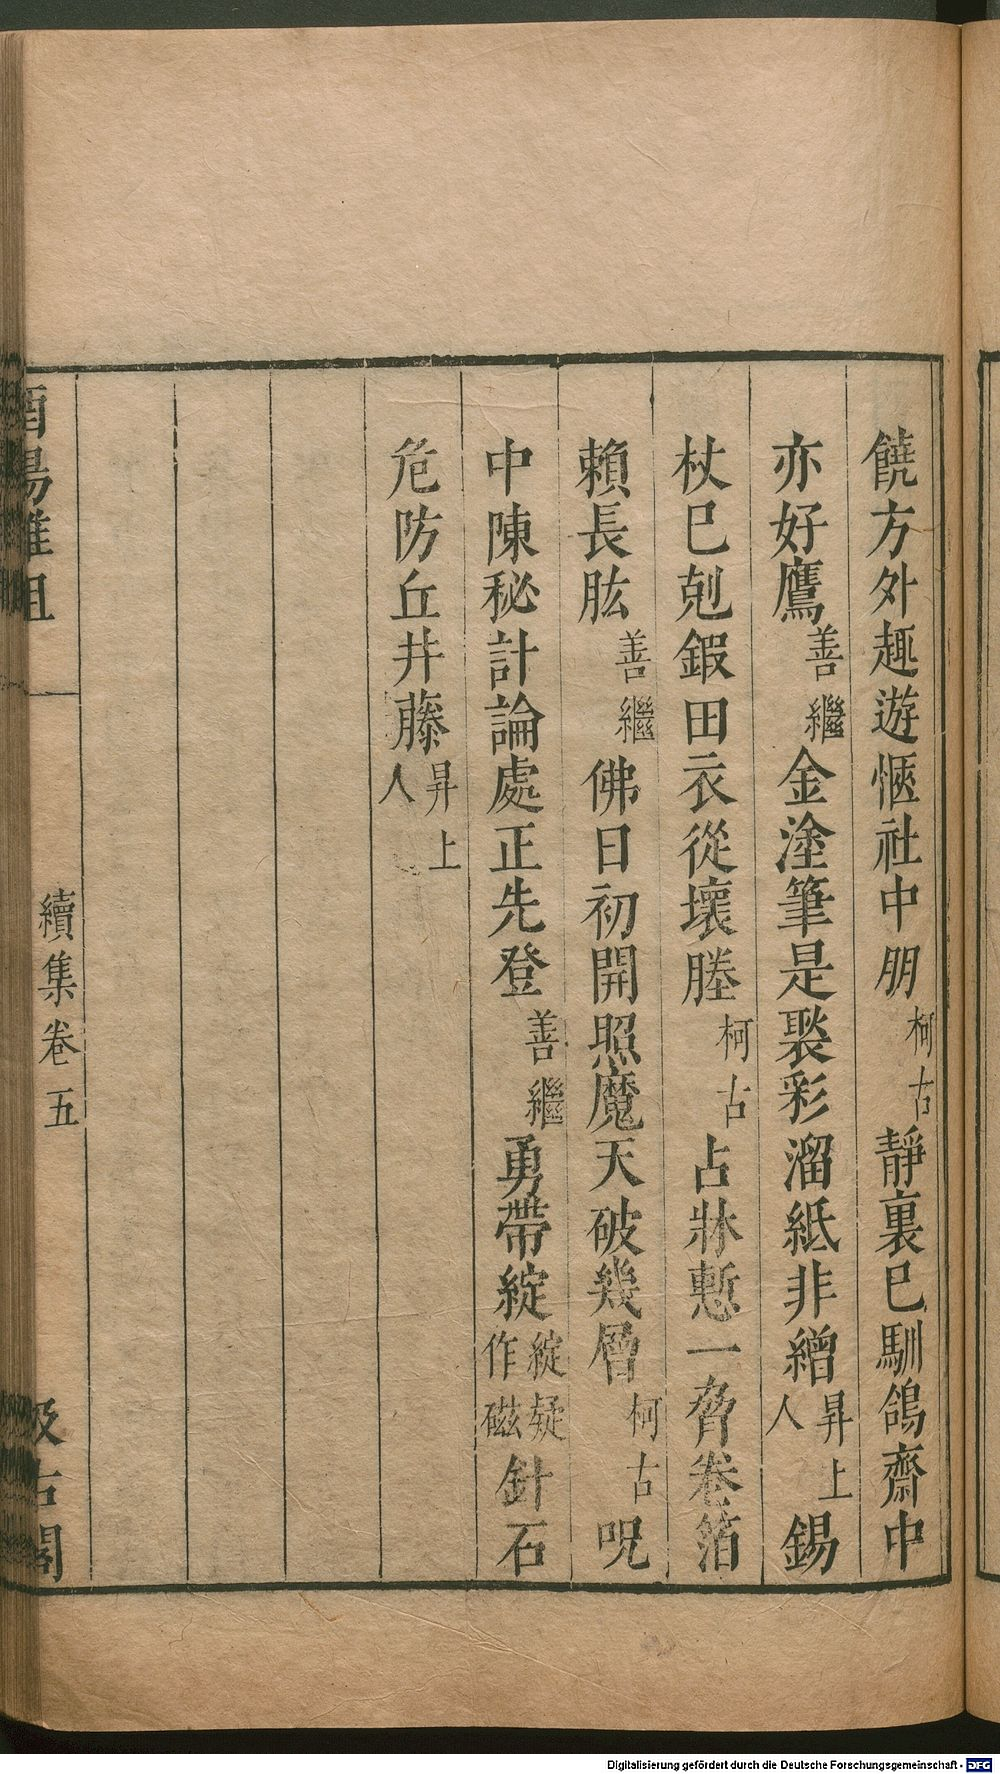 饒方外趣遊愜社中朋柯古靜裏已馴鴿齋中
亦好鷹善繼金塗筆是褧彩溜紙非繒昇上人錫
杖已剋鍜田衣從壞塍柯古占牀慙一脅卷箔
賴長肱善繼佛日初開照魔天破幾層柯古呪
中陳秘計論處正先登善繼勇帶綻綻疑作磁針石
危防丘井藤昇上人
酉陽雜俎
續集卷五
汲古閣
Digitalisierung gefördert durch die Deutsche Forschungsgemeinschaft - DFG